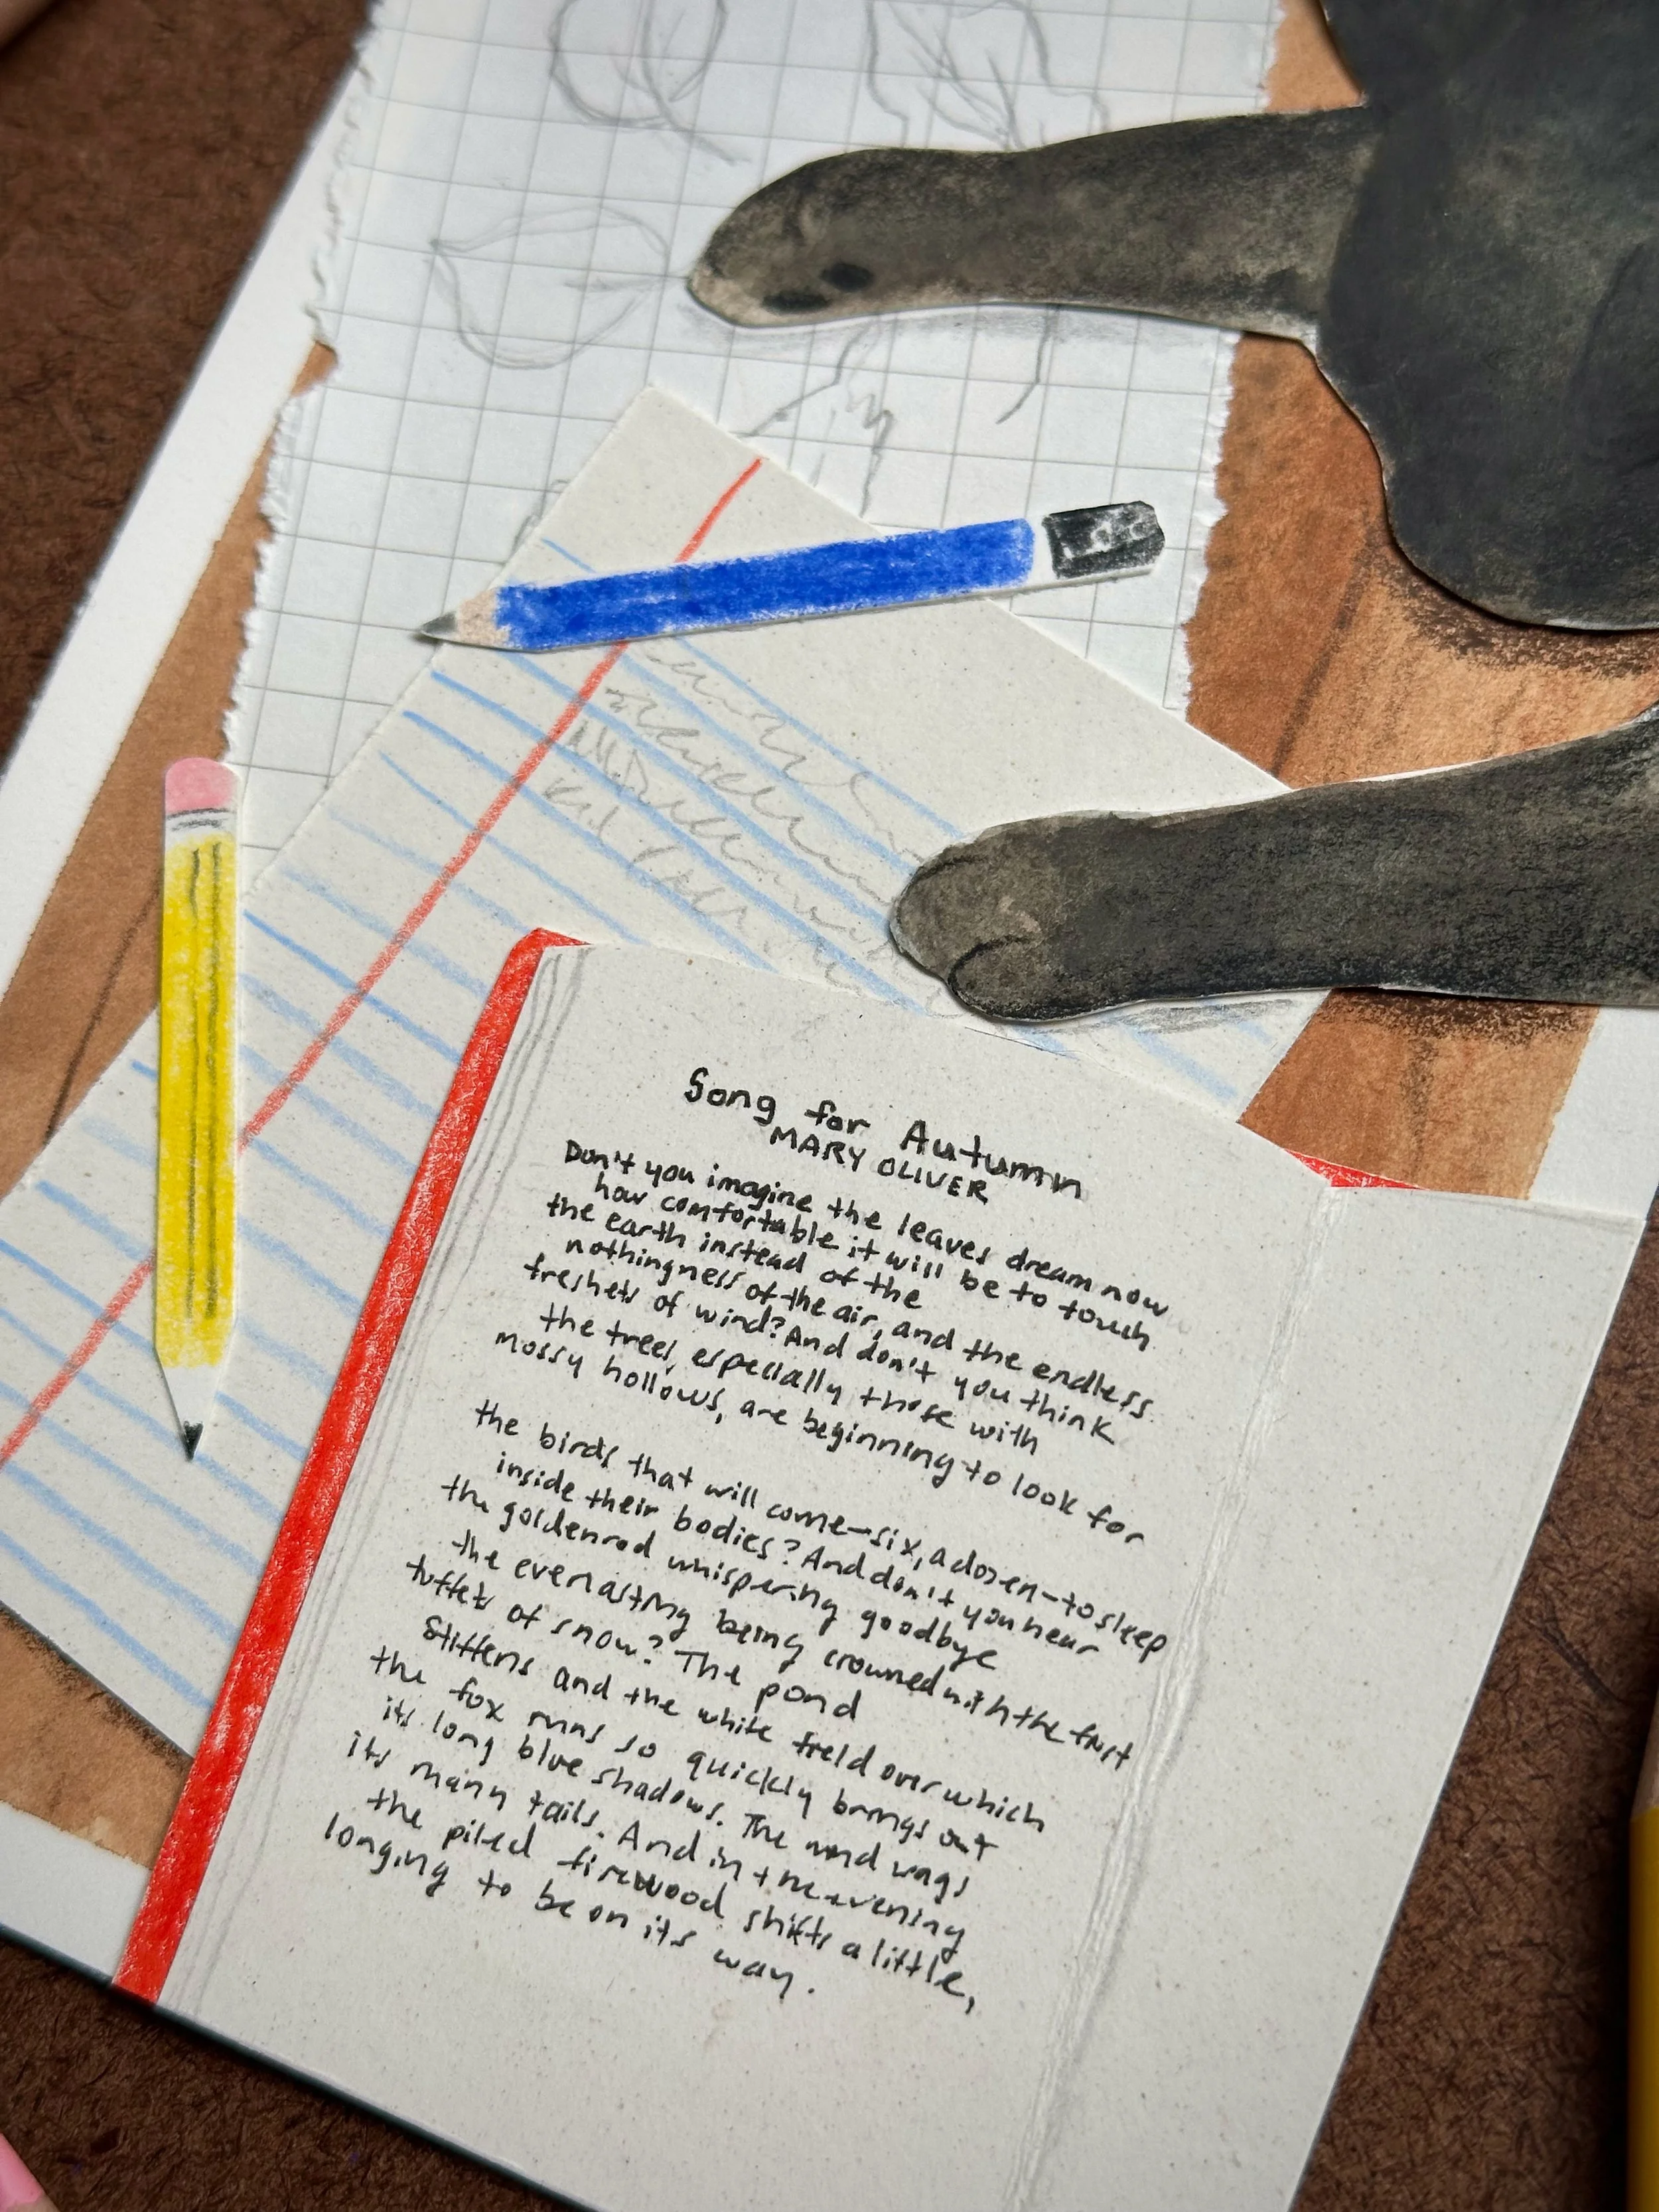 Song for Autumn
MARY OLIVER
Don't you imagine the leaves dream now
how comfortable it will be to touch
the earth instead of the
nothingness of the air, and the endless
freshets of wind? And don't you think
the trees, especially those with
mossy hollows, are beginning to look for
the birds that will come—six, a dozen—to sleep
inside their bodies? And don't you hear
the goldenrod whispering goodbye
the everlasting being crowned with the first
tuffets of snow? The pond
stiffens and the white field over which
the fox runs so quickly brings out
its long blue shadows. The wind wags
its many tails. And in the evening
the piled firewood shifts a little,
longing to be on its way.